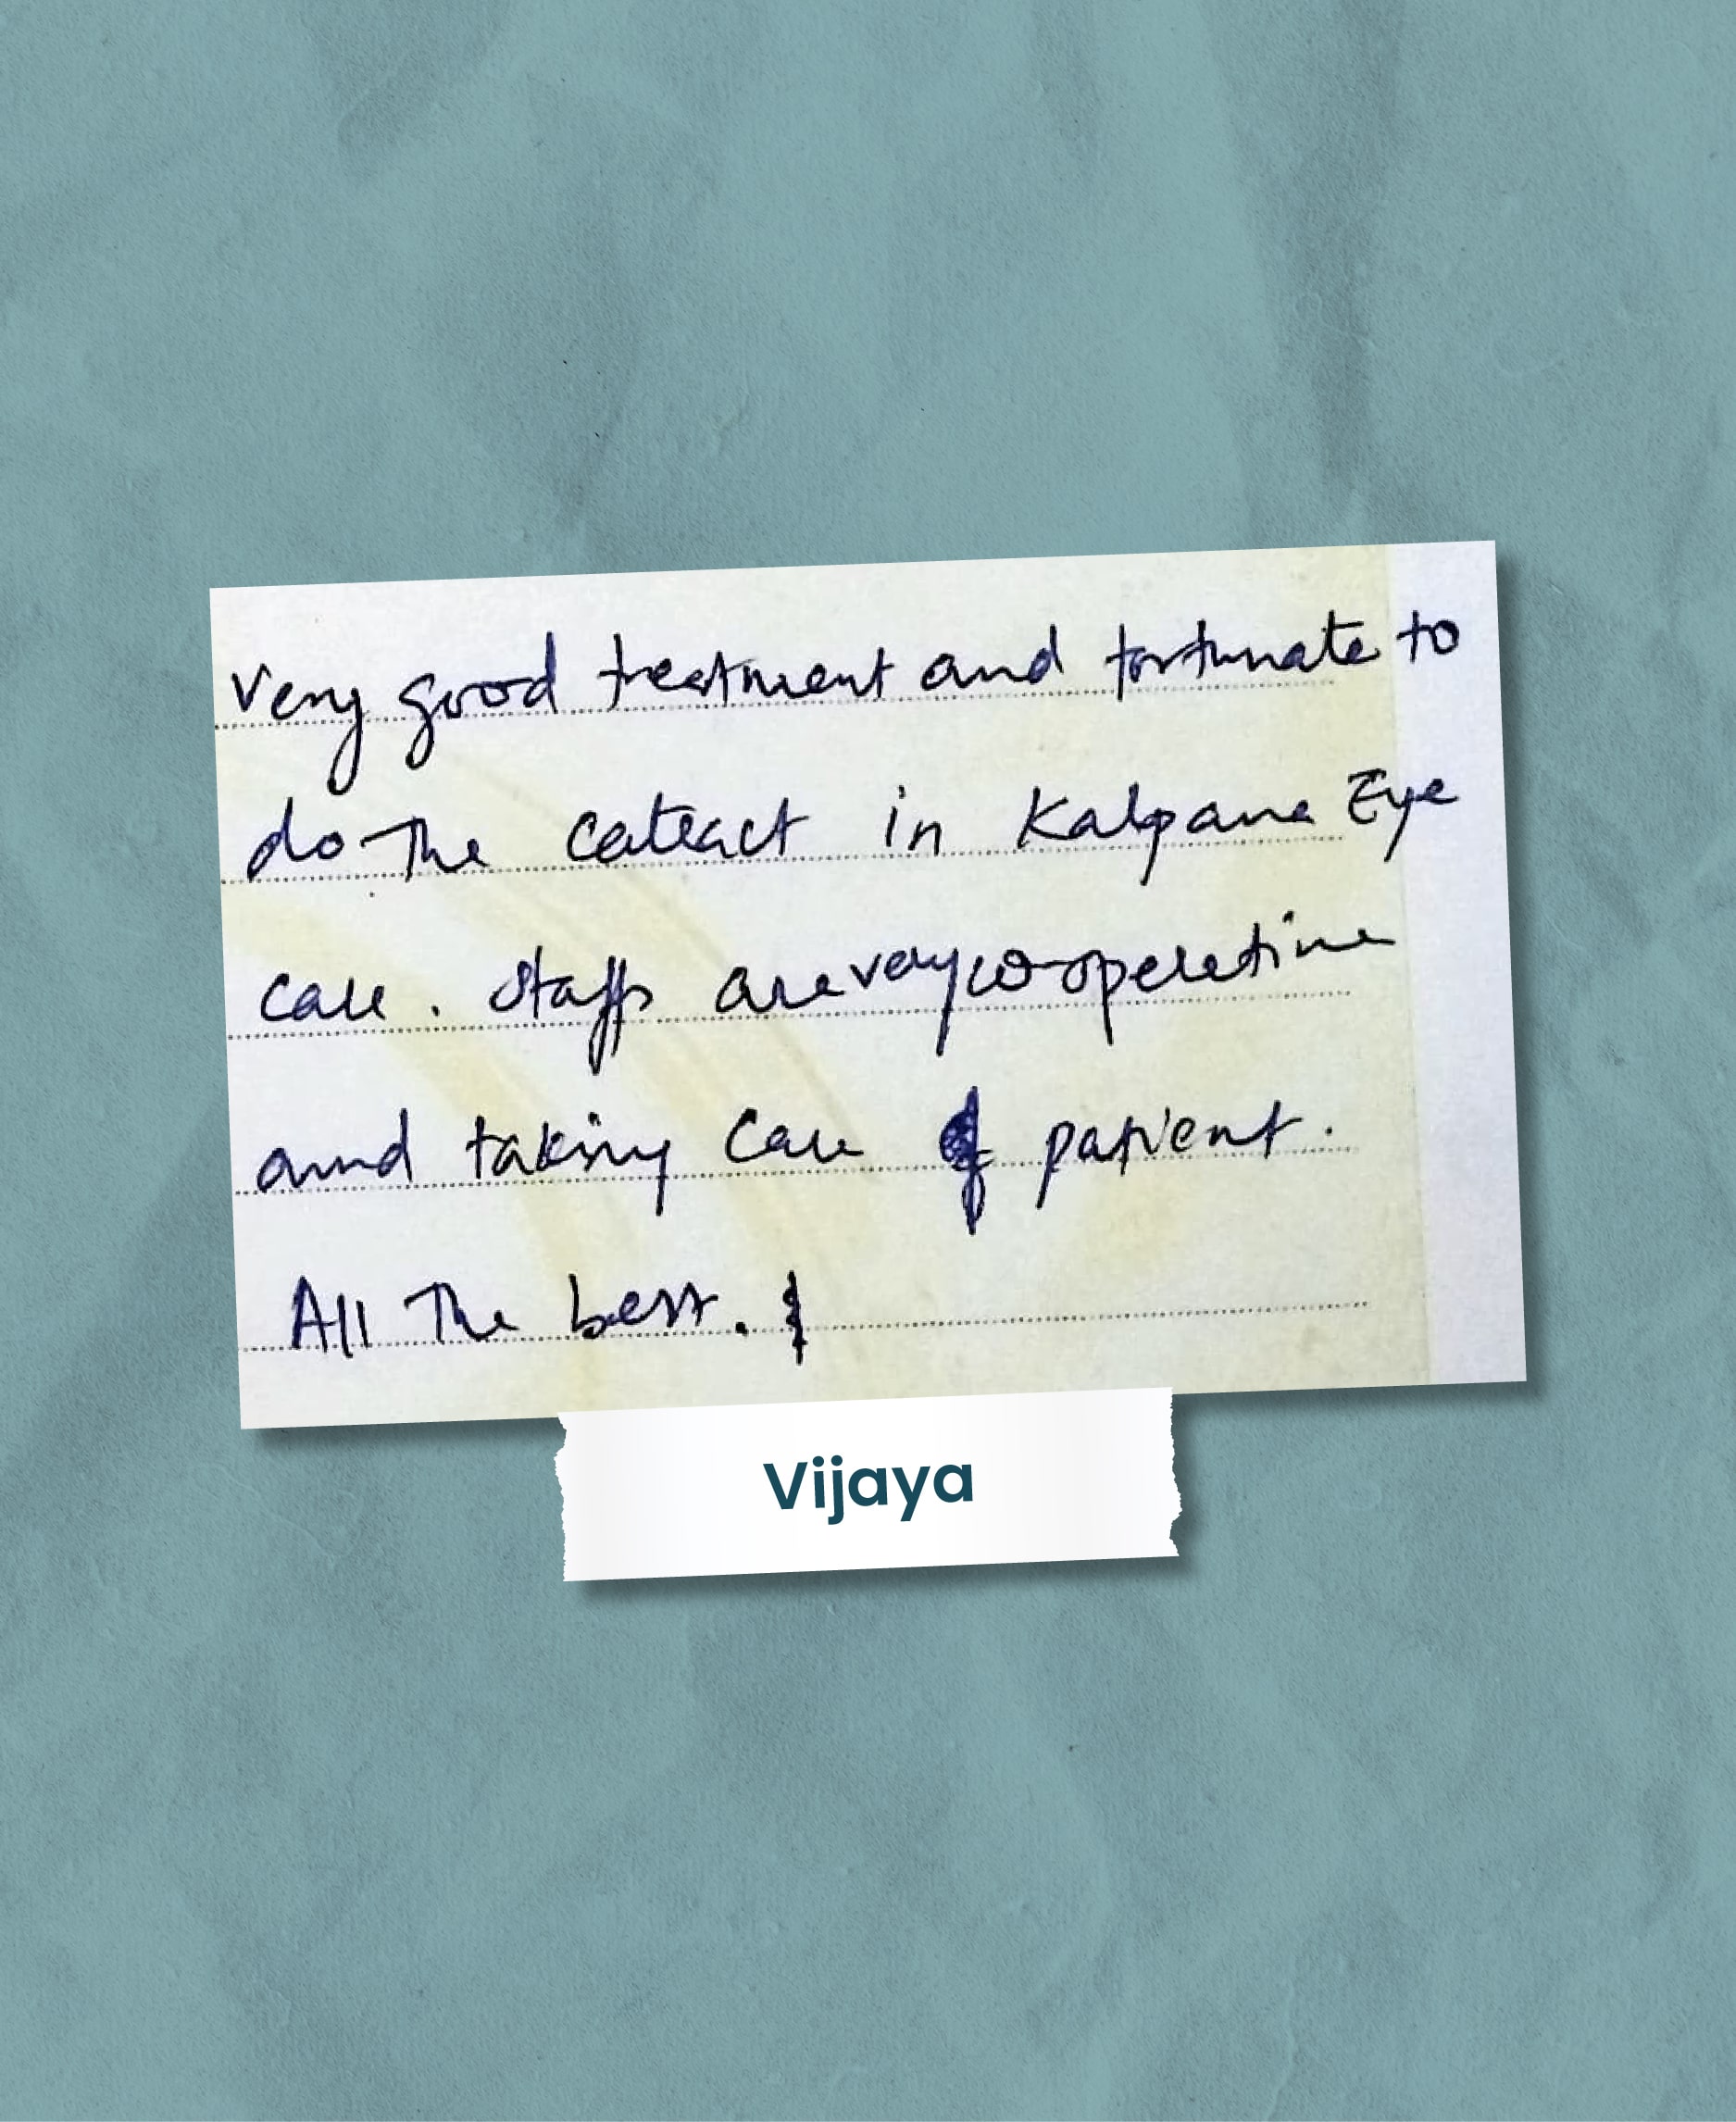 Very good treatment and fortunate to
do the cateract in Kalpana Eye
care. Staffs are very co-operative
and taking care of patient.
All The best.
Vijaya